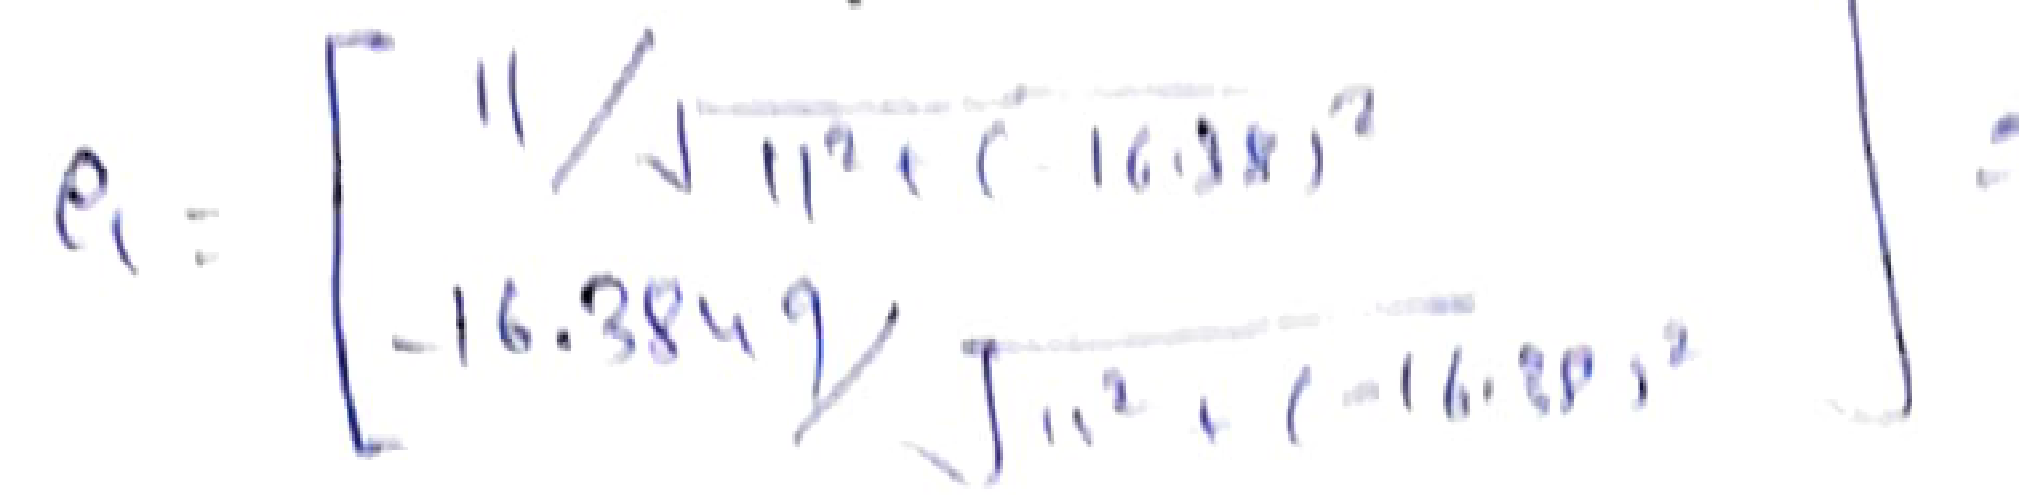 e₁ = [ 11 / √(11² + (-16.38)²)
-16.3849 / √(11² + (-16.38)²) ] =